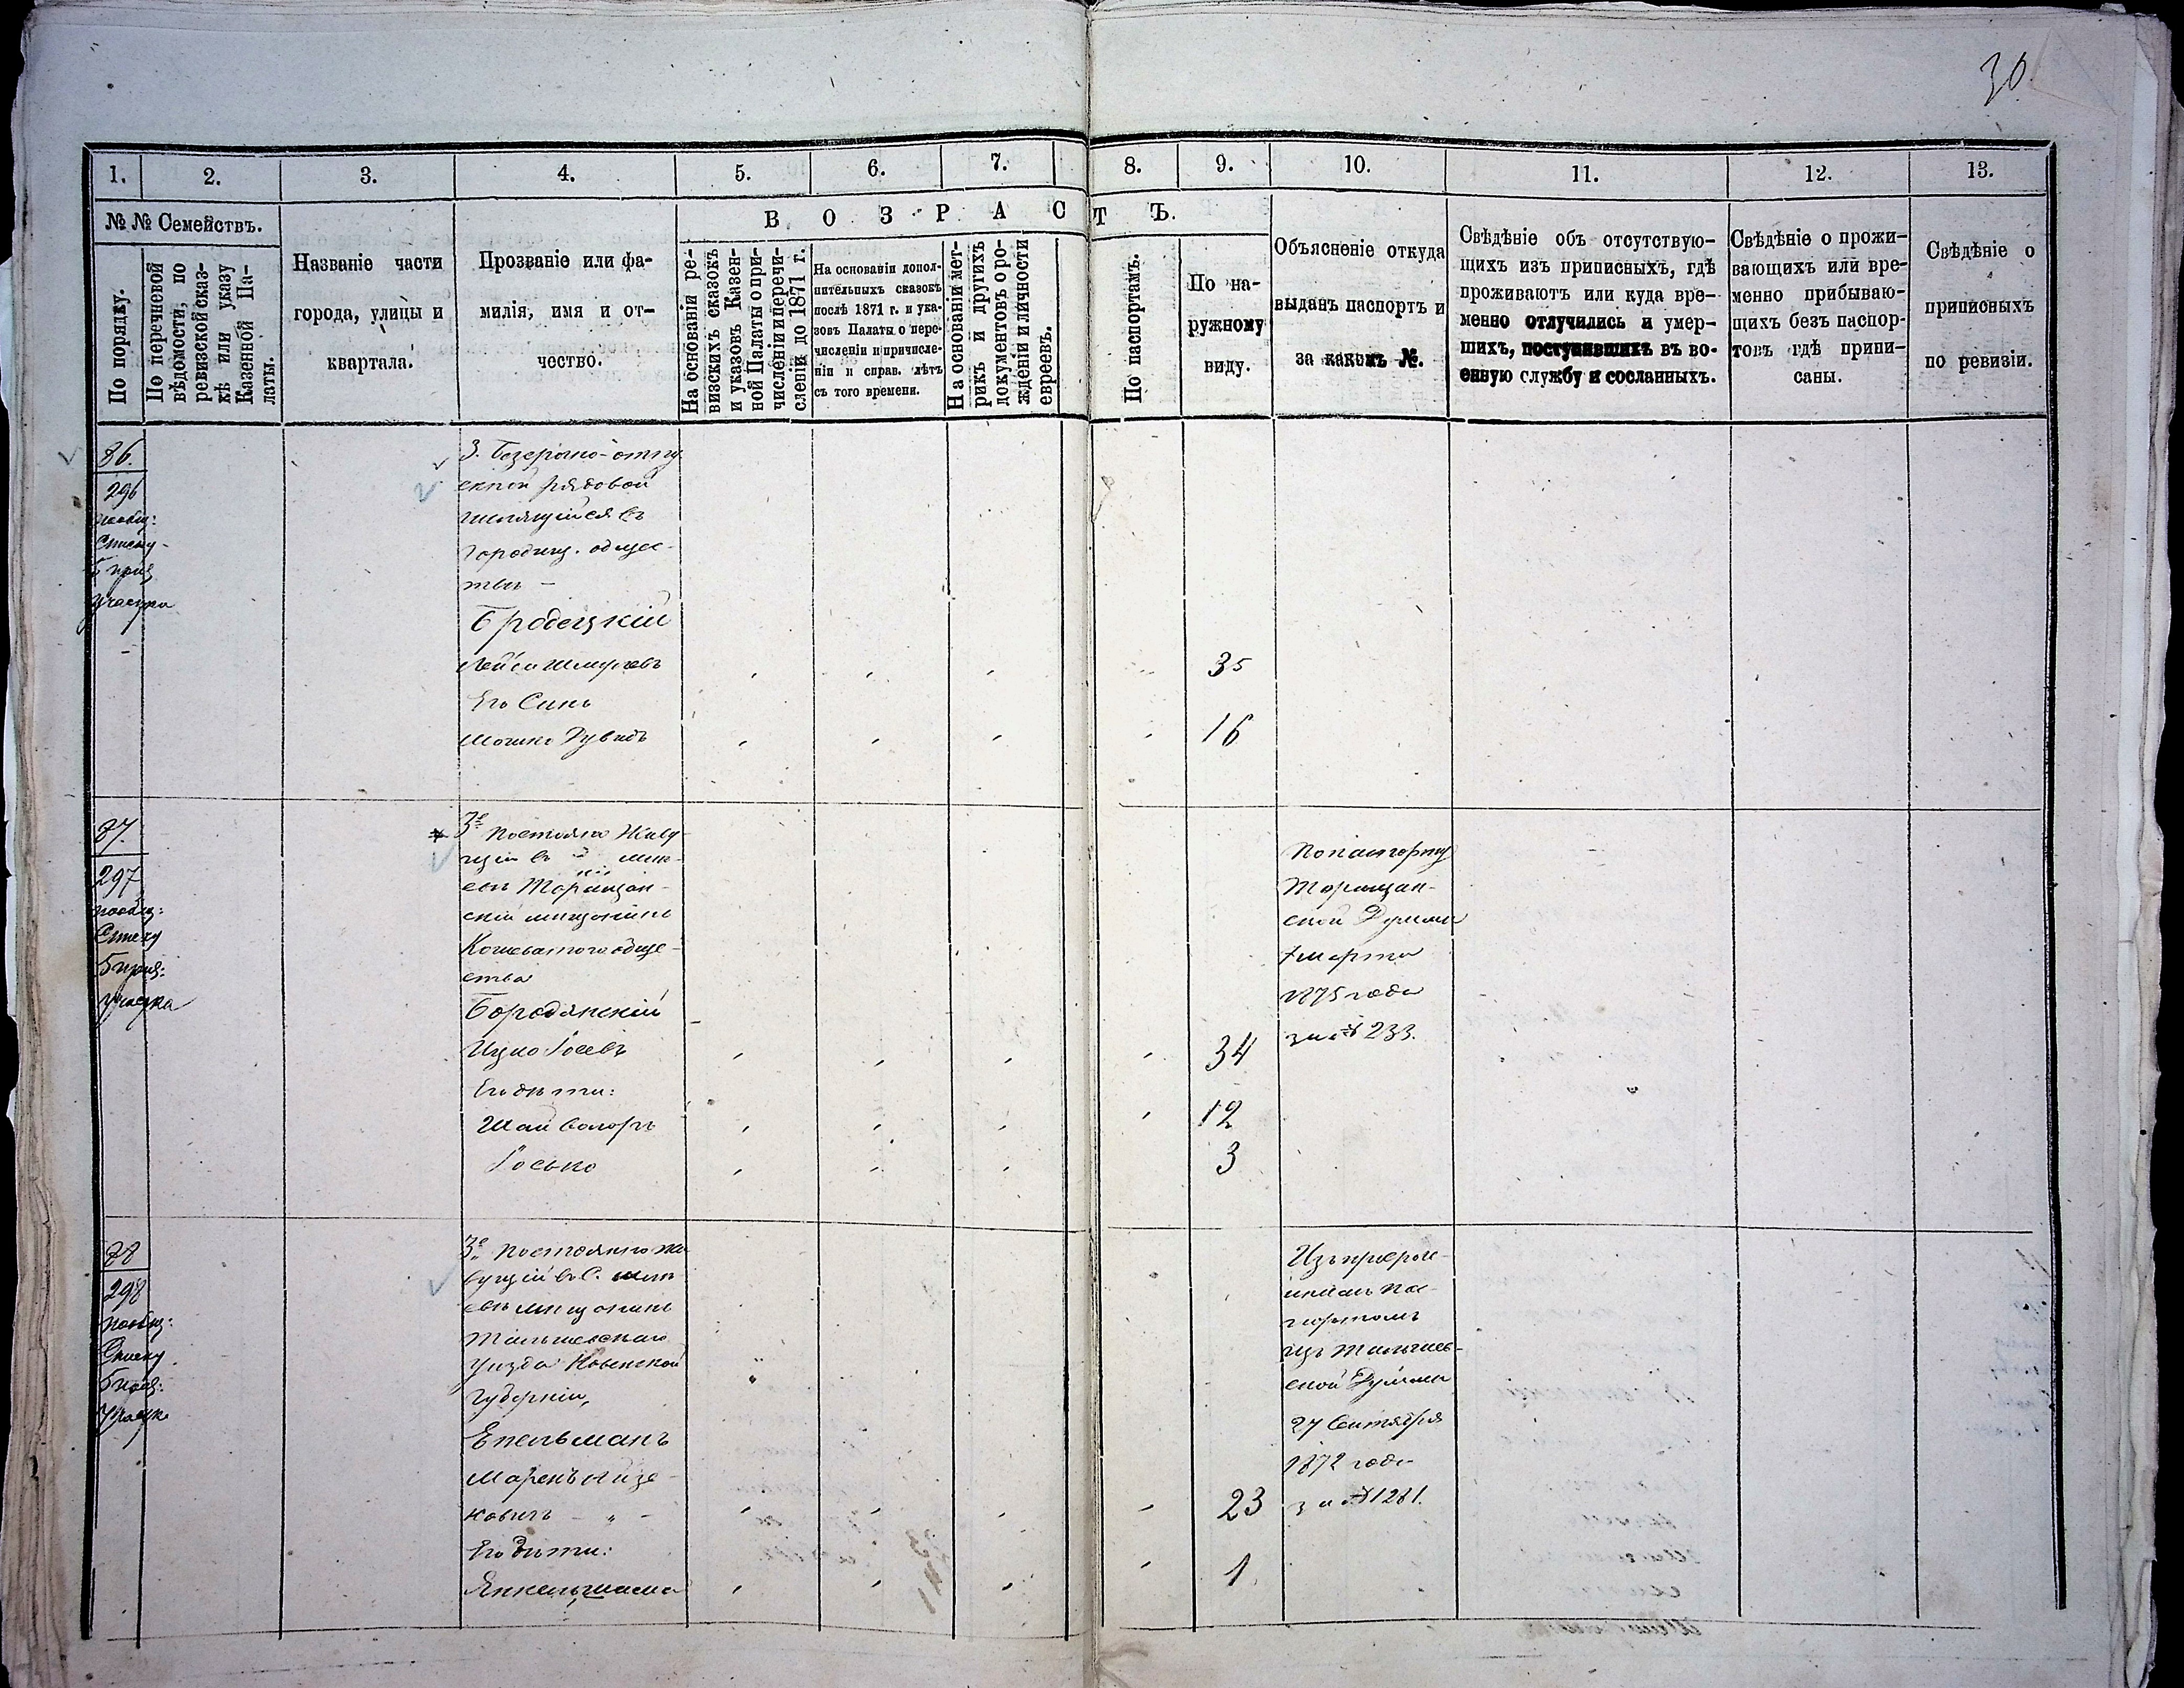 30
1. 2. 3. 4. 5. 6. 7. 8. 9. 10. 11. 12. 13.
№ № Семействъ.
По порядку.
По перечневой
вѣдомости, по
ревизской сказ-
кѣ или указу
Казенной Па-
латы.
Названіе части
города, улицы и
квартала.
Прозваніе или фа-
милія, имя и от-
чество.
ВОЗРАСТЪ.
На основаніи ре-
визскихъ сказокъ
и указовъ Казен-
ной Палаты о при-
численіи и перечи-
сленіи до 1871 г.
На основаніи допол-
нительныхъ сказокъ
послѣ 1871 г. и ука-
зовъ Палаты о пере-
численіи и причисле-
ніи и справ. лѣтъ
съ того времени.
На основаніи мет-
рикъ и другихъ
документовъ о ро-
жденіи и личности
евреевъ.
По паспортамъ.
По на-
ружному
виду.
Объясненіе откуда
выданъ паспортъ и
за какомъ №.
Свѣдѣніе объ отсутствую-
щихъ изъ приписныхъ, гдѣ
проживаютъ или куда вре-
менно отлучились и умер-
шихъ, поступившихъ въ во-
енную службу и сосланныхъ.
Свѣдѣніе о прожи-
вающихъ или вре-
менно прибываю-
щихъ безъ паспор-
товъ гдѣ припи-
саны.
Свѣдѣніе о
приписныхъ
по ревизіи.
86.
296
пообщ:
Списку
5 приз
Участка
3. безсрочно-отпу
скной рядовой
числящійся въ
Городищ. общес-
твѣ -
Бродецкій
Лейба Шмулевъ 35
Его Сынъ
Мошко Дувидъ 16
87.
297
пообщ:
Списку
5 приз:
участка
3е постояно Живу-
щій въ
Таращан-
скій мищанинъ
Кошеватого обще-
ства
Бородянскій
Ицко Іосевъ 34
Его дѣти:
Шай 12
Іосько 3
По паспорту
Таращан-
ской Думы
марта
1875 года
за № 233.
88
298
пообщ:
Списку
5 приз:
Участк
3е постоянно жи
вущій въ С.
мищанинъ
Тельшевскаго
уизда Ковенской
Губерніи,
Епельманъ
Марекъ Айзе-
ковичъ - „ - 23
Его дити:
Янкель 1
паспортомъ
изъ Тельшев-
ской Думы
27 Сентября
1872 года
за № 1281.